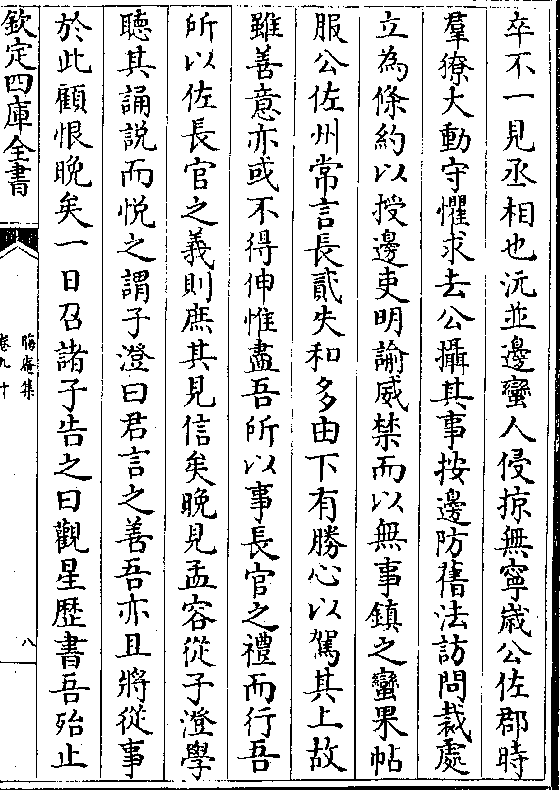 卒不一見丞相也沅並邊蠻人侵掠無寧歲公佐郡時
羣獠大動守懼求去公攝其事按邊防舊法訪問裁處
立為條約以授邊吏明諭威禁而以無事鎮之蠻果帖
服公佐州常言長貳失和多由下有勝心以駕其上故
雖善意亦或不得伸惟盡吾所以事長官之禮而行吾
所以佐長官之義則庶其見信矣晚見孟容從子澄學
聽其誦説而悦之謂子澄曰君言之善吾亦且將從事
於此顧恨晚矣一日召諸子告之曰觀星歴書吾殆止
欽定四庫全書
晦庵集
卷九十
八